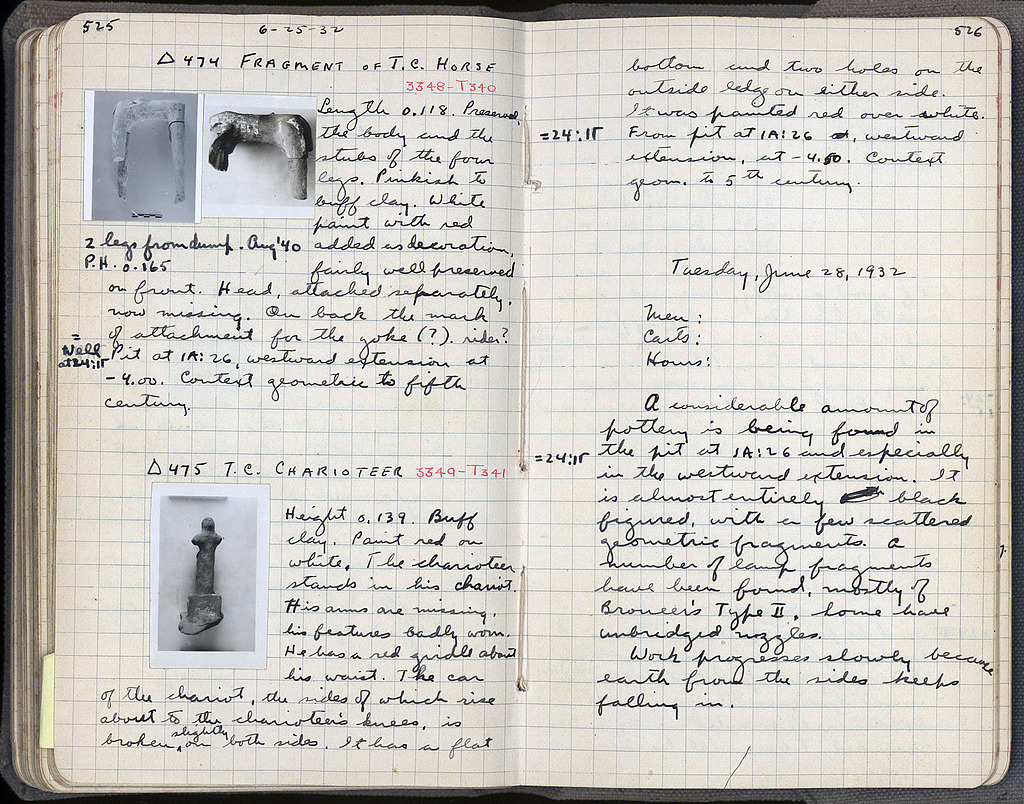 525
6-25-32
△ 474 FRAGMENT OF T.C. HORSE
3348-T340
Length 0.118. Preserved,
the body and the
stubs of the four
legs. Pinkish to
buff clay. White
paint with red
2 legs from dump. Aug '40
added as decoration,
P.H. 0.165
fairly well preserved
on front. Head, attached separately,
now missing. On back the mark
of attachment for the yoke (?). rider?
= Well at 24:ΙΓ
Pit at 1A:26, westward extension at
-4.00. Context geometric to fifth
century.
△ 475 T.C. CHARIOTEER 3349-T341
Height 0.139. Buff
clay. Paint red on
white. The charioteer
stands in his chariot.
His arms are missing,
his features badly worn.
He has a red girdle about
his waist. The car
of the chariot, the sides of which rise
about to the charioteer's knees, is
broken slightly on both sides. It has a flat
526
bottom and two holes on the
outside ledge on either side.
It was painted red over white.
=24:ΙΓ
From pit at 1A:26, westward
extension, at -4.50. Context
geom. to 5th century.
Tuesday, June 28, 1932
Men:
Carts:
Hours:
A considerable amount of
pottery is being found in
=24:ΙΓ
the pit at 1A:26 and especially
in the westward extension. It
is almost entirely black
figured, with a few scattered
geometric fragments. A
number of lamp fragments
have been found, mostly of
Broneer's Type II, some have
unbridged nozzles.
Work progresses slowly because
earth from the sides keeps
falling in.